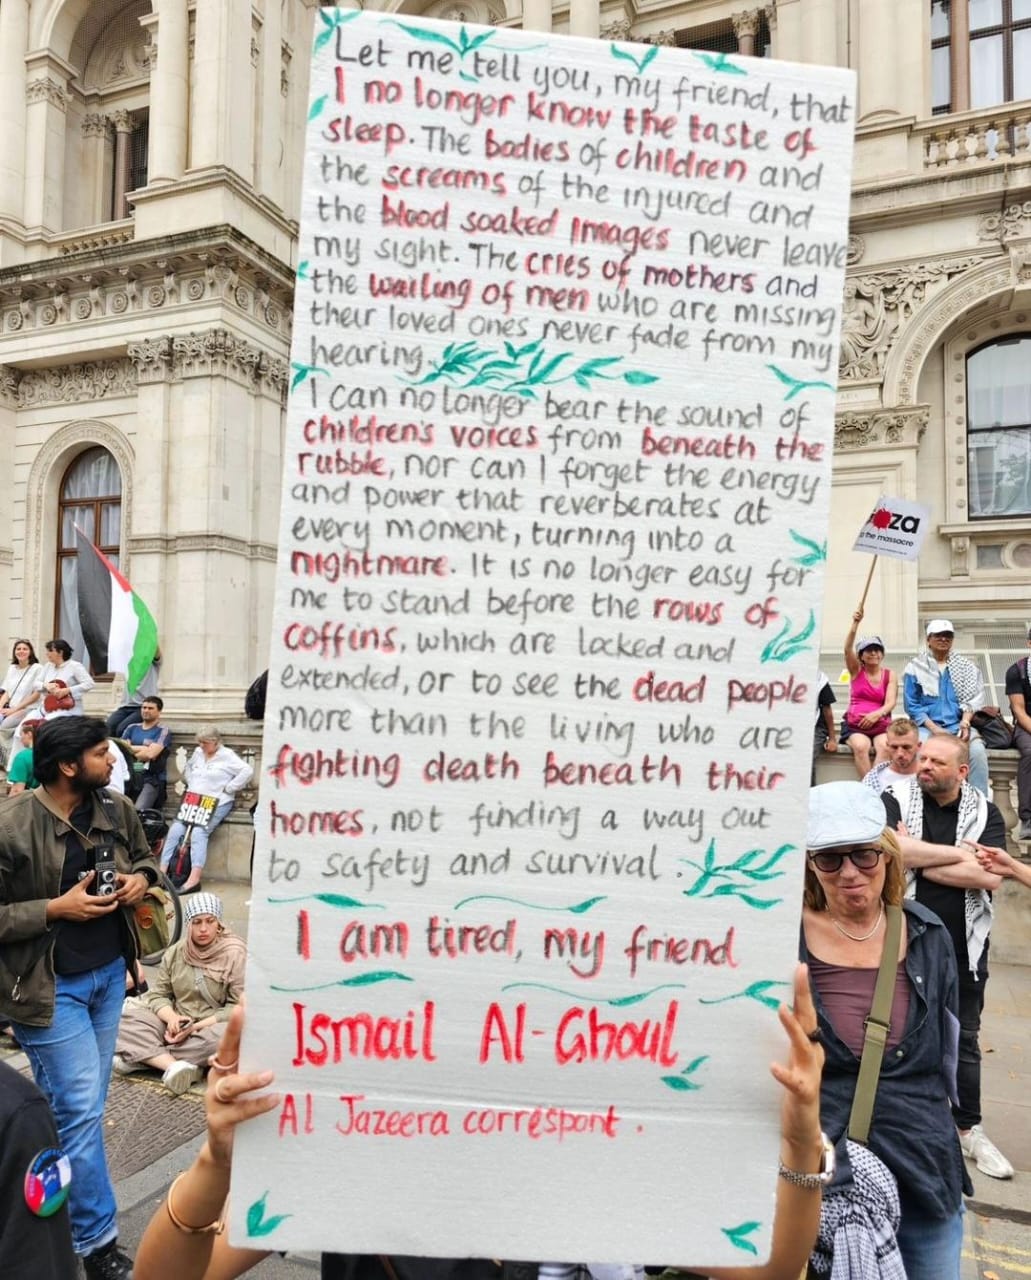 Let me tell you, my friend, that
I no longer know the taste of
sleep. The bodies of children and
the screams of the injured and
the blood soaked Images never leave
my sight. The cries of mothers and
the wailing of men who are missing
their loved ones never fade from my
hearing.
I can no longer bear the sound of
children's voices from beneath the
rubble, nor can I forget the energy
and power that reverberates at
every moment, turning into a
nightmare. It is no longer easy for
me to stand before the rows of
coffins, which are locked and
extended, or to see the dead people
more than the living who are
fighting death beneath their
homes, not finding a way out
to safety and survival.
I am tired, my friend
Ismail Al-Ghoul
Al Jazeera correspont.
the massacre
THE
SIEGE